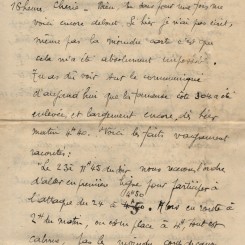 18 heures. Chérie - Rien du tout pour une fois me
voici encore debout. Si hier je n'ai pas écrit,
même pas la moindre carte c'est que
cela m'a été absolument impossible.
Tu as dû voir sur le communiqué
d'aujourd'hui que la fameuse côte 304 a été
enlevée, et largement encore, dès hier
matin 4h40. Voici les faits vaguement
racontés:
"Le 23 à 11h45 du soir nous recevons l'ordre
d'aller en première ligne pour participer à
l'attaque du 24 à 4h50. Alors en route à
2h du matin, en place à 4h, tout est
calme, pas le moindre coup de canon